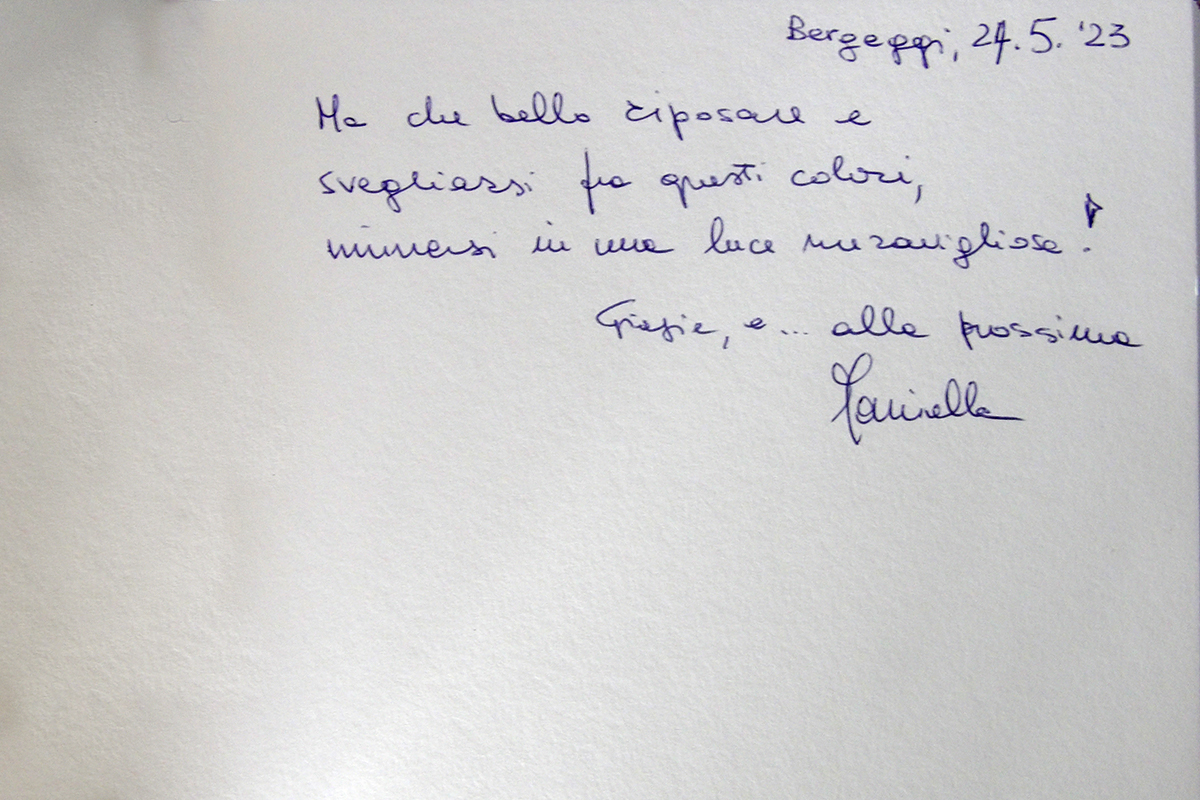 Bergeggi, 24.5.'23
Ma che bello riposare e
svegliarsi fra questi colori,
immersi in una luce meravigliosa!
Grazie, e... alla prossima
Marinella